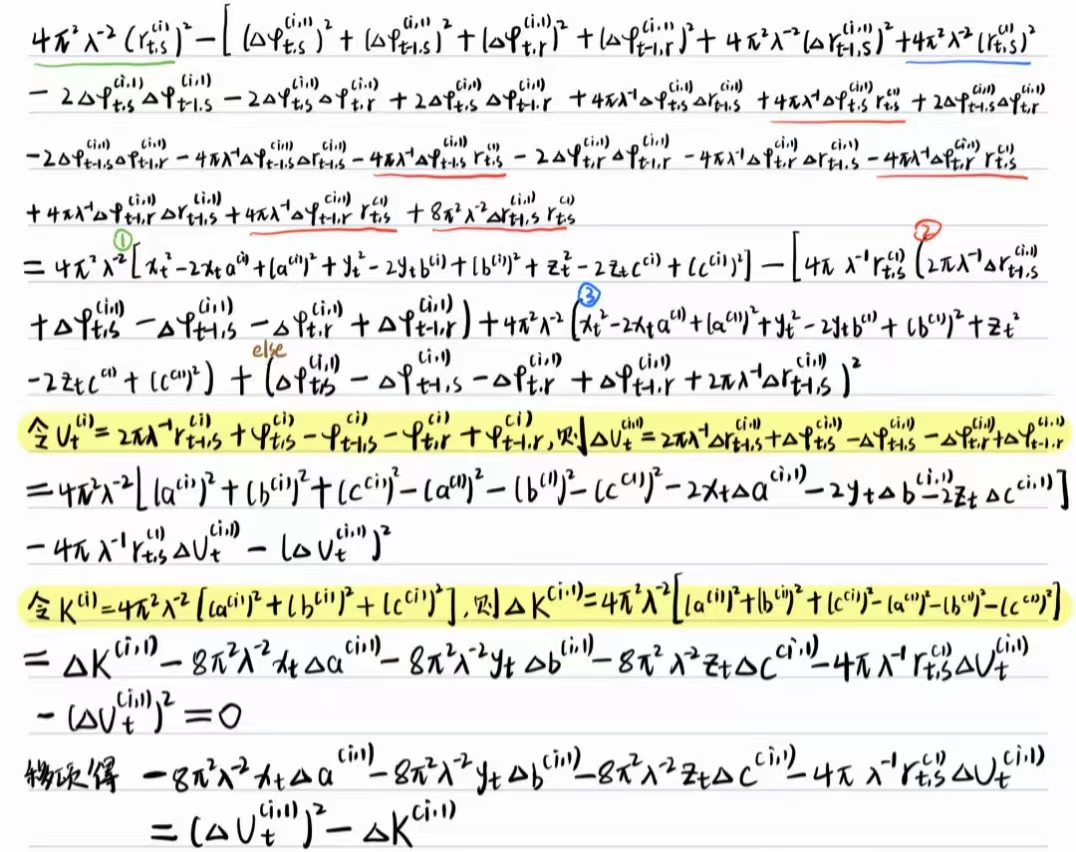 4π²λ⁻²(r_{t,s}^{(i)})² − [(Δφ_{t,s}^{(i,1)})² + (Δφ_{t-1,s}^{(i,1)})² + (Δφ_{t,r}^{(i,1)})² + (Δφ_{t-1,r}^{(i,1)})² + 4π²λ⁻²(Δr_{t-1,s}^{(i,1)})² + 4π²λ⁻²(r_{t,s}^{(1)})²
− 2Δφ_{t,s}^{(i,1)}Δφ_{t-1,s}^{(i,1)} − 2Δφ_{t,s}^{(i,1)}Δφ_{t,r}^{(i,1)} + 2Δφ_{t,s}^{(i,1)}Δφ_{t-1,r}^{(i,1)} + 4πλ⁻¹Δφ_{t,s}^{(i,1)}Δr_{t-1,s}^{(i,1)} + 4πλ⁻¹Δφ_{t,s}^{(i,1)}r_{t,s}^{(1)} + 2Δφ_{t-1,s}^{(i,1)}Δφ_{t,r}^{(i,1)}
−2Δφ_{t-1,s}^{(i,1)}Δφ_{t-1,r}^{(i,1)} − 4πλ⁻¹Δφ_{t-1,s}^{(i,1)}Δr_{t-1,s}^{(i,1)} − 4πλ⁻¹Δφ_{t-1,s}^{(i,1)}r_{t,s}^{(1)} − 2Δφ_{t,r}^{(i,1)}Δφ_{t-1,r}^{(i,1)} − 4πλ⁻¹Δφ_{t,r}^{(i,1)}Δr_{t-1,s}^{(i,1)} − 4πλ⁻¹Δφ_{t,r}^{(i,1)}r_{t,s}^{(1)}
+ 4πλ⁻¹Δφ_{t-1,r}^{(i,1)}Δr_{t-1,s}^{(i,1)} + 4πλ⁻¹Δφ_{t-1,r}^{(i,1)}r_{t,s}^{(1)} + 8π²λ⁻²Δr_{t-1,s}^{(i,1)}r_{t,s}^{(1)}
① ②
= 4π²λ⁻²[x_t² − 2x_t a^{(i)} + (a^{(i)})² + y_t² − 2y_t b^{(i)} + (b^{(i)})² + z_t² − 2z_t c^{(i)} + (c^{(i)})²] − [4πλ⁻¹r_{t,s}^{(1)}(2πλ⁻¹Δr_{t-1,s}^{(i,1)}
③
+ Δφ_{t,s}^{(i,1)} − Δφ_{t-1,s}^{(i,1)} − Δφ_{t,r}^{(i,1)} + Δφ_{t-1,r}^{(i,1)}) + 4π²λ⁻²(x_t² − 2x_t a^{(1)} + (a^{(1)})² + y_t² − 2y_t b^{(1)} + (b^{(1)})² + z_t²
else
−2z_t c^{(1)} + (c^{(1)})²) + (Δφ_{t,s}^{(i,1)} − Δφ_{t-1,s}^{(i,1)} − Δφ_{t,r}^{(i,1)} + Δφ_{t-1,r}^{(i,1)} + 2πλ⁻¹Δr_{t-1,s}^{(i,1)})²
令 U_t^{(i)} = 2πλ⁻¹r_{t-1,s}^{(i)} + φ_{t,s}^{(i)} − φ_{t-1,s}^{(i)} − φ_{t,r}^{(i)} + φ_{t-1,r}^{(i)}, 则 ΔU_t^{(i,1)} = 2πλ⁻¹Δr_{t-1,s}^{(i,1)} + Δφ_{t,s}^{(i,1)} − Δφ_{t-1,s}^{(i,1)} − Δφ_{t,r}^{(i,1)} + Δφ_{t-1,r}^{(i,1)}
= 4π²λ⁻²[(a^{(i)})² + (b^{(i)})² + (c^{(i)})² − (a^{(1)})² − (b^{(1)})² − (c^{(1)})² − 2x_tΔa^{(i,1)} − 2y_tΔb^{(i,1)} − 2z_tΔc^{(i,1)}]
− 4πλ⁻¹r_{t,s}^{(1)}ΔU_t^{(i,1)} − (ΔU_t^{(i,1)})²
令 K^{(i)} = 4π²λ⁻²[(a^{(i)})² + (b^{(i)})² + (c^{(i)})²], 则 ΔK^{(i,1)} = 4π²λ⁻²[(a^{(i)})² + (b^{(i)})² + (c^{(i)})² − (a^{(1)})² − (b^{(1)})² − (c^{(1)})²]
= ΔK^{(i,1)} − 8π²λ⁻²x_tΔa^{(i,1)} − 8π²λ⁻²y_tΔb^{(i,1)} − 8π²λ⁻²z_tΔc^{(i,1)} − 4πλ⁻¹r_{t,s}^{(1)}ΔU_t^{(i,1)}
− (ΔU_t^{(i,1)})² = 0
移项得 −8π²λ⁻²x_tΔa^{(i,1)} − 8π²λ⁻²y_tΔb^{(i,1)} − 8π²λ⁻²z_tΔc^{(i,1)} − 4πλ⁻¹r_{t,s}^{(1)}ΔU_t^{(i,1)}
= (ΔU_t^{(i,1)})² − ΔK^{(i,1)}